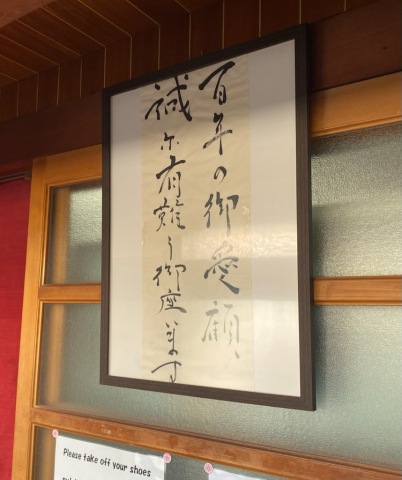 百年の御愛顧
誠尓有難う御座います
Please take off your shoes